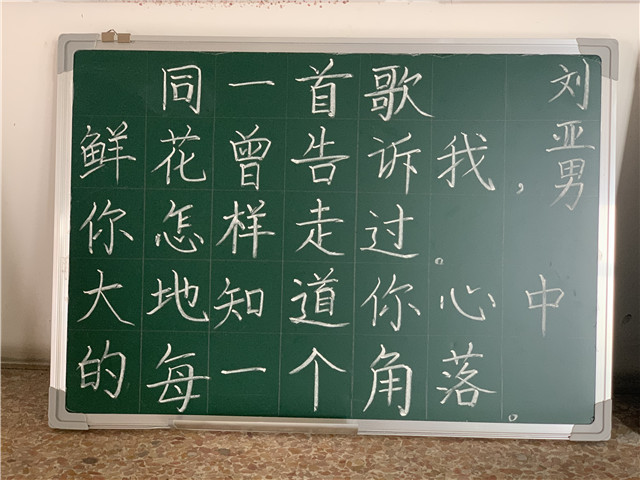 同一首歌
鲜花曾告诉我，
你怎样走过。
大地知道你心中
的每一个角落。
刘亚男